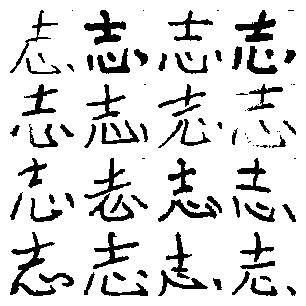 志志志志
志志志志
志志志志
志志志志